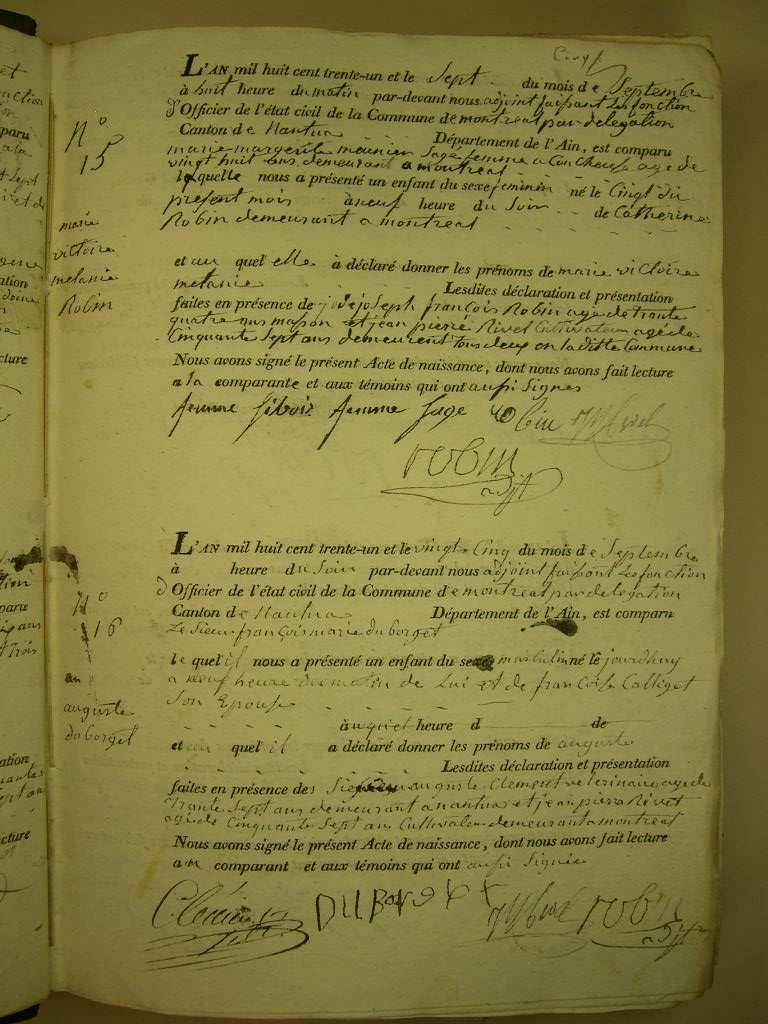 N° 15
marie
victoire
melanie
Robin
L'AN mil huit cent trente-un et le Sept du mois de Septembre
à huit heure du matin par-devant nous adjoint faissant Les fonction
d'Officier de l'état civil de la Commune de montreal par delegation
Canton de Nantua Département de l'Ain, est comparu
marie margerite meunier Sage femme a Coucheuse age de
vingt huit ans demeurant a montreal
laquelle nous a présenté un enfant du sexe feminin né le Cinq du
present mois à neuf heure du Soir de Catherine
Robin demeurant a montreal
et au quel elle à déclaré donner les prénoms de marie victoire
melanie Lesdites déclaration et présentation
faites en présence de joseph françois Robin age de trante
quatre ans masson et jean pierre Rivet Cultivateur agé de
Cinquante Sept ans demeurent tous deux en laditte Commune
Nous avons signé le présent Acte de naissance, dont nous avons fait lecture
a la comparante et aux témoins qui ont aussi Signes
femme Sage
robin
adjt
N° 16
auguste
duborget
L'AN mil huit cent trente-un et le vingt Cinq du mois de Septembre
à heure du Soir par-devant nous adjoint faissont Les fonction
d Officier de l'état civil de la Commune de montreal par delegation
Canton de Nantua Département de l'Ain, est comparu
Le Sieur françois marie duborget
le quel il nous a présenté un enfant du sexe masculin né le jourdhuy
a neuf heure du matin de Lui et de françoise Calliget
Son Epouse
heure d de
et au quel il a déclaré donner les prénoms de auguste
Lesdites déclaration et présentation
faites en présence des Sieurs auguste Clement veterinaire age de
Trante Sept ans demeurant a nantua et jean pierre Rivet
age de Cinquante Sept ans Cultivateur demeurant a montreal
Nous avons signé le présent Acte de naissance, dont nous avons fait lecture
au comparant et aux témoins qui ont aussi Signé
Clement DUBORGET robin
adjt